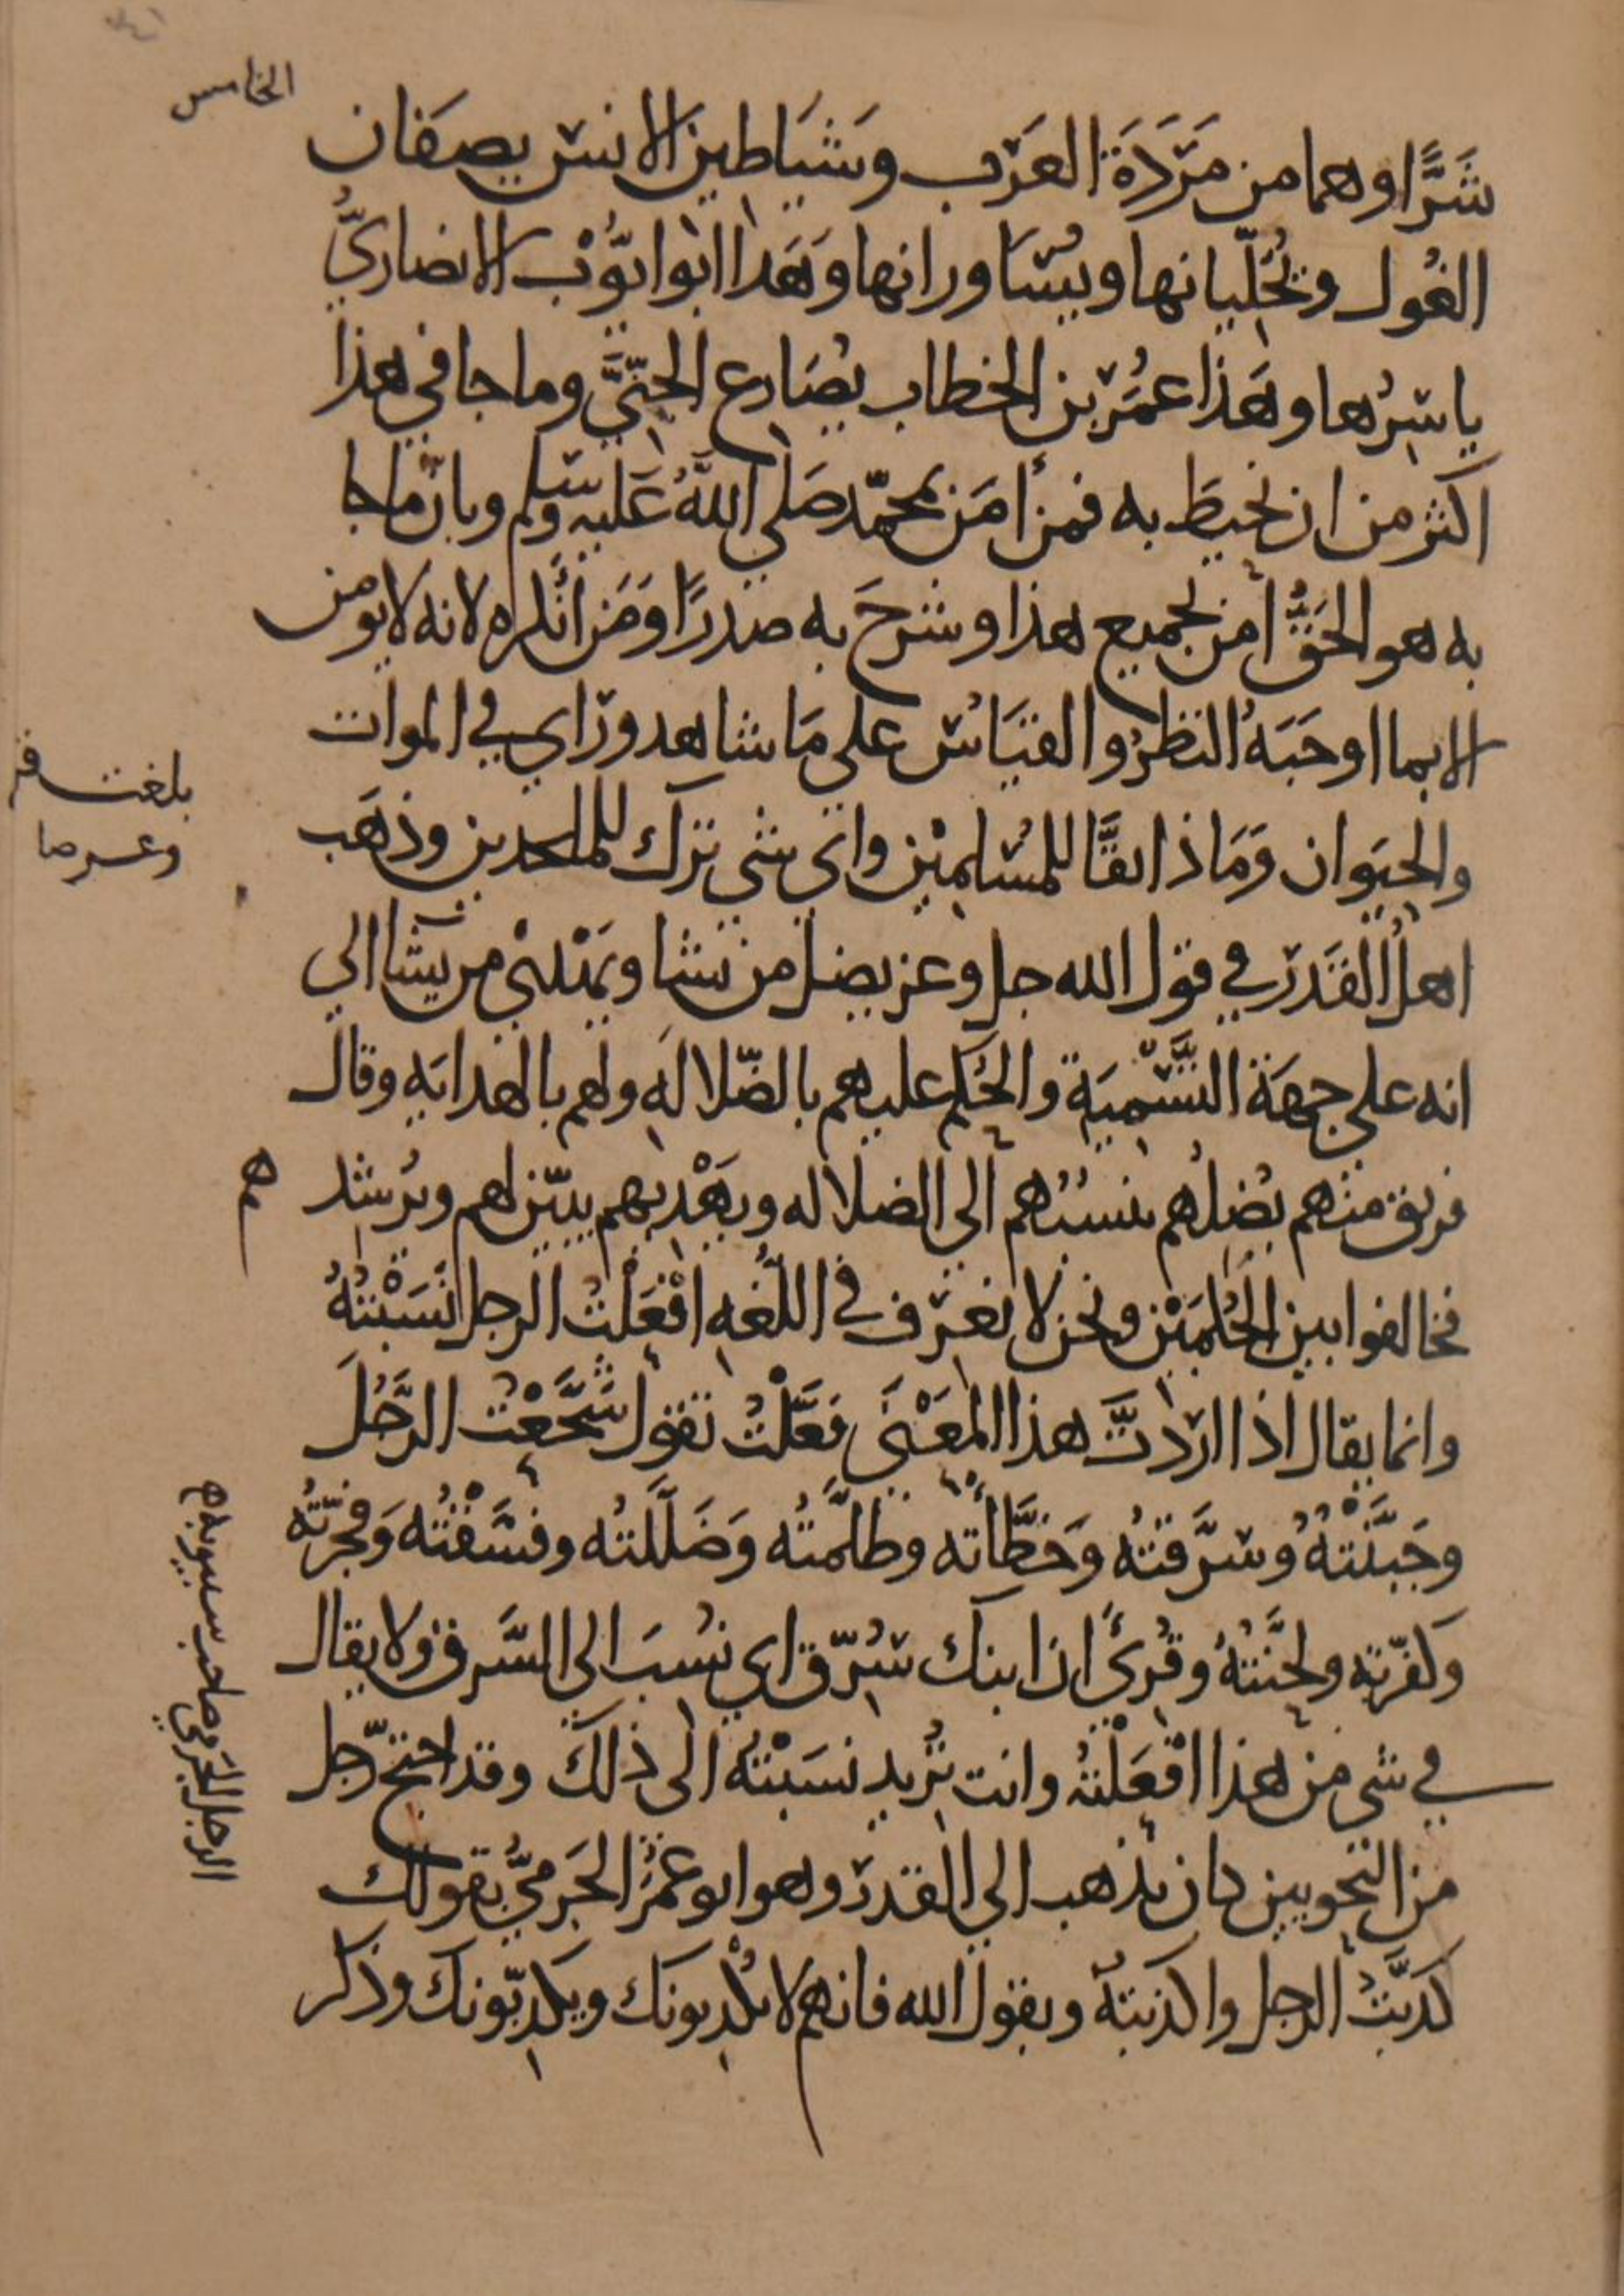 الخامس
شَرًّا وهما من مَرَدَة العَرَب وشَيَاطين الانس يصفان
الغُول ويُحَلّيانها ويُسَاورانها وَهَذا ابو ايّوْب الانصاريُّ
ياسِرُها وهَذا عمُر بن الخطاب يُصَارع الجنّيَّ وما جا في هذا
اكثر من ان نحيطَ به فمن امَن بمحمّد صَلي اللهُ عَليه وسلم وبانّ ما جا
به هو الحَقُّ امن بجميع هذا وشرحَ به صدرًا وَمَن انكره لانه لا يومن
الا بما اوجَبَهُ النظرُ والقيَاسُ علي مَا شاهد وراي في الموات
والحيَوان وَمَاذا ابقَّا للمُسْلمِيْن واي شي ترك للملحدين وذهَب
اهلُ القَدَر في قول الله جل وعز يضل من يشا ويَهْدي من يشا الي
انه علي جهَة التَّسْميَة والحُكم عليهم بالضّلالَه ولهم بالهدايَه وقال
فريق منهم يُضلُهم ينسبُهم الى الضلاله ويَهْديهم يبيّن لهم ويُرشد هم
فخالفوا بين الحُكمَيْن ونحن لا نعرف في اللُّغه افْعَلْتُ الرجل نَسَبْتهُ
وانما يقال اذا اردتَّ هذا المعْنَى فَعَّلْتُ تقول شَجَّعْت الرَّجُلَ
وجَبَّنْتهُ وسَرَّقتهُ وَخطَّأته وظلَّمتُه وَضَلَّلتُه وفسَّقْتُه وَفجّرتهُ
وَكفّرته ولحَّنتهُ وقُرئ ان ابنك سُرّق اي نُسبَ الى السَّرق ولا يقال
في شي من هذا افْعَلْتهُ وانت تُريد نسَبْتهُ الى ذلك وقد احتجّ رجل
من النحويين كان يذهب الي القدر وهو ابو عُمَر الجَرميُّ بقولك
كذبَّتُ الرجل واكذبتهُ وبقول الله فانهم لا يُكْذبونك ويكذّبونك وذكر
بلغت
الرجل الجَرمي صاحب سيبويه